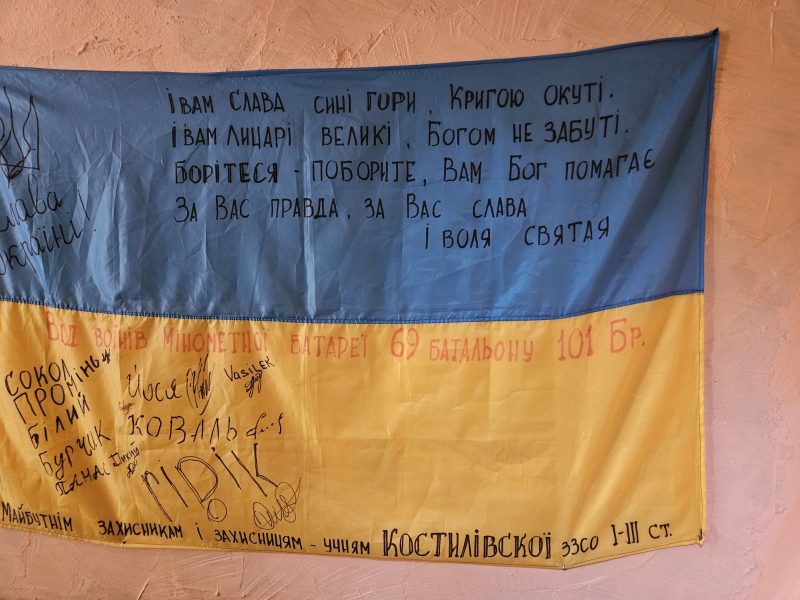 І вам слава сині гори, Кригою окуті.
І вам лицарі великі, Богом не забуті.
Борітеся - поборите, Вам Бог помагає
За Вас правда, за Вас слава
і воля святая
Слава
Україні!
Від воїнів мінометної батареї 69 батальону 101 Бр.
СОКОЛ
ПРОМІНЬЧ
БІЛИЙ
БУРЧИК
Йося
VASILEK
КОВАЛЬ
ГІДІК
Майбутнім захисникам і захисницям - учням КОСТИЛІВСКОЇ ЗЗСО І-ІІІ СТ.